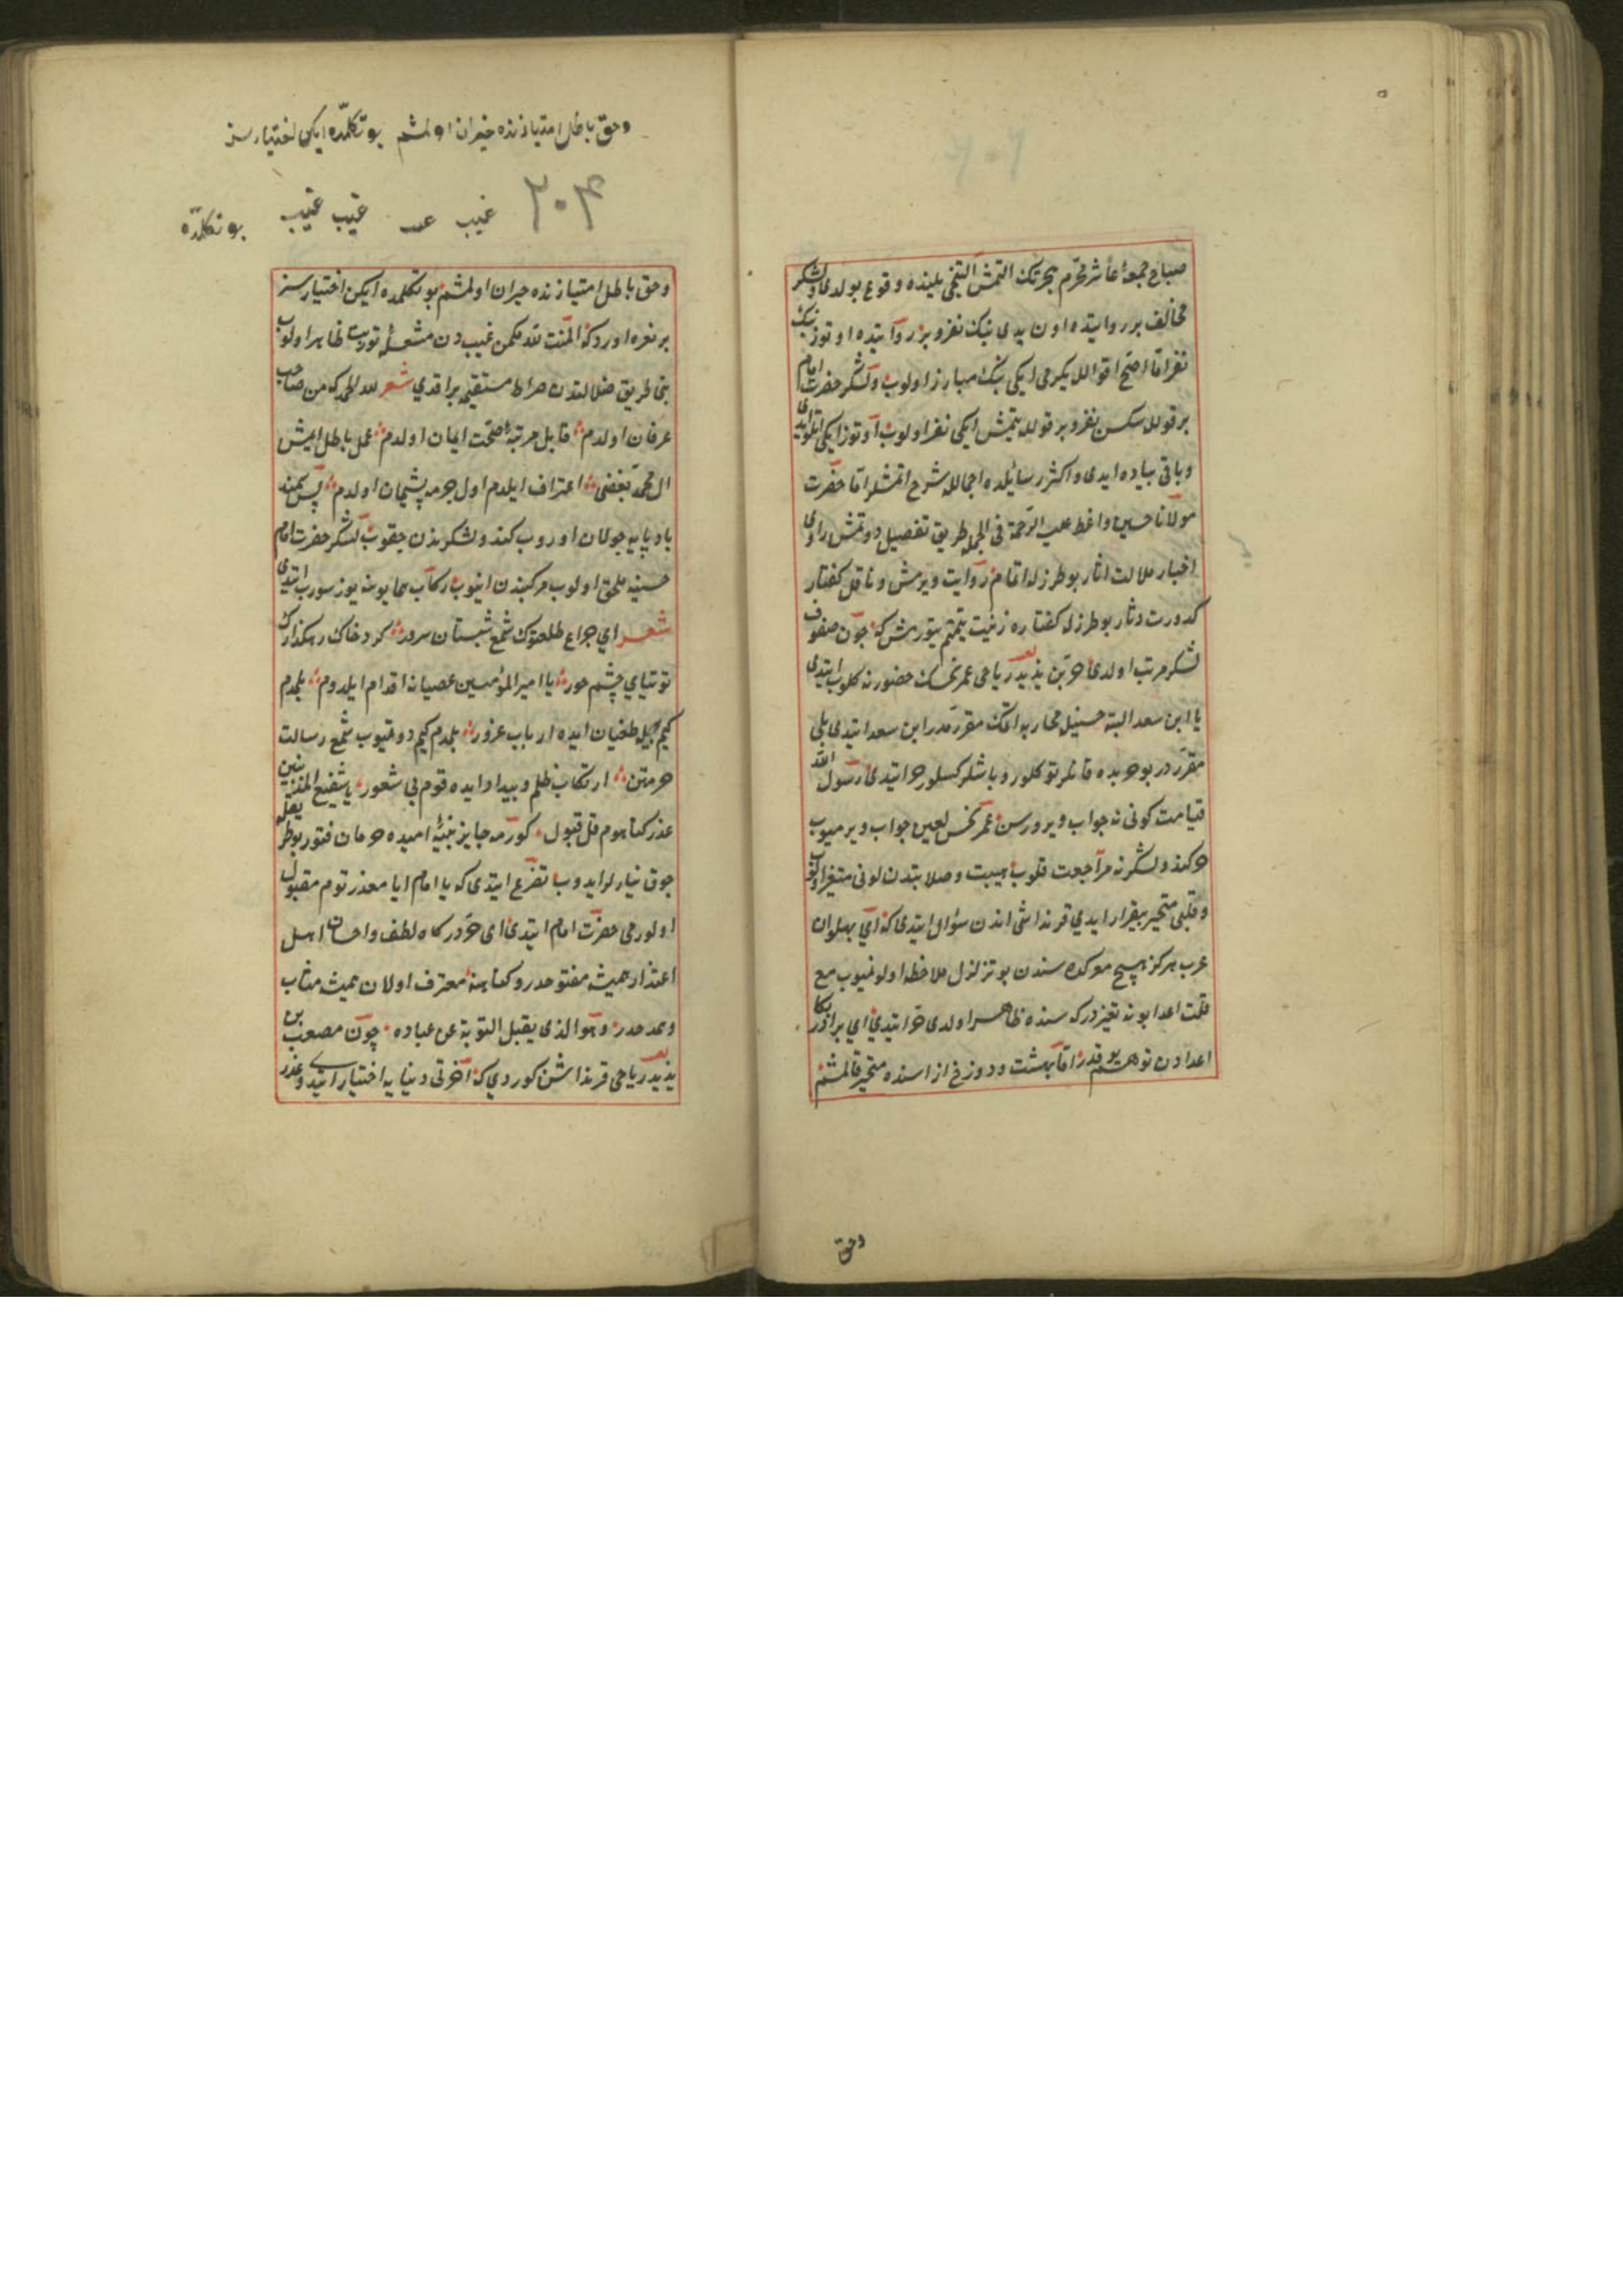 صباح جمعهٔ عاشر محرّم هجرتك التمش التنجی یلینده وقوع بولدی ولشكر
مخالف بر روایتده اون یدی بیك نفر و بر روایتده اوتوز بیك
نفر امّا اصحّ اقوالله یكرمی ایكی بیك مبارز اولوب ولشكر حضرت امام
بر قولله سكسن نفر و بر قولله یتمش ایكی نفر اولوب اوتوز ایكی اتلو ایدی
وباقی پیاده ایدی واكثر رسائلده اجمالله شرح اتمشلر امّا حضرت
مولانا حسین واعظ علیه الرّحمة فی الجمله طریق تفصیل دوتمش راوی
اخبار ملالت اثار بو طرزله اتمام روایت ویرمش وناقل كفتار
كدورت دثار بو طرزله كفتاره زینت یتورمش كه چون صفوف
لشكر مرتب اولدی حرّ بن یزید ریاحی عمر نحسك حضورنه كلوب ایتدی
یا ابن سعد البته حسینیله محاربه اتمك مقرّردر ابن سعد ایتدی بلی
مقرّردر بو حربده قانلر توكلور و باشلر كسلور حر ایتدی رسول الله
قیامت كونی نه جواب ویرورسن عمر نحس لعین جواب ویرمیوب
حر كندو لشكرنه مراجعت قلوب هیبت وصلابتدن لونی متغیر اولوب
وقلبی متحیر بیقرار ایدی قرنداشی اندن سؤال ایتدی كه ای پهلوان
عرب هركز هیچ معركده سندن بو تزلزل ملاحظه اولونمیوب مع
قلت اعدا بو نه تغیردر كه سنده ظاهر اولدی حر ایتدی ای برادر بكا
اعدادن توهم یوقدر امّا بهشت و دوزخ اراسنده متحیر قالمشم
وحق
وحق باطل امتیازنده حیران اولمشم بو تكلمده ایكن اختیارسز
۲۰۴ غیب عـ غیب غیب بو تكلمده
وحق باطل امتیازنده حیران اولمشم بو تكلمده ایكن اختیارسز
بر نعره اوردی كه المنت لله مكمن غیبدن مشعلهٔ توفیق ظاهر اولوب
بنی طریق ضلالتدن صراط مستقیمه براقدی شعر لله الحمد كه من صاحب
عرفان اولدم قابل مرتبهٔ صحّت ایمان اولدم عمل باطل ایمش
ال محمّد بغضی اعتراف ایلدم اول جرمه پشیمان اولدم پس سمند
بادپایه جولان اوروب كندو لشكرندن چقوب لشكر حضرت امام
حسینه ملحق اولوب مركبندن اینوب ركاب همایونه یوز سورب ایتدی
شعر ای چراغ طلعتوك شمع شبستان سرور كرد خاك رهكذارك
توتیای چشم حور یا امیر المؤمنین عصیانه اقدام ایلدوم بلمدم
كیم بیله طغیان ایده ارباب غرور بلمدم كیم دوتمیوب شمع رسالت
حرمتن ارتكاب ظلم وبیداد ایده قوم بی شعور یا شفیع المذنبین
عذر كناهوم قل قبول كورمه جایز بنیهٔ امیده حرمان فتور بو طریقله
چوق نیازلر ایدوب تضرّع ایتدی كه یا امام ایا معذرتوم مقبول
اولورمی حضرت امام ایتدی ای حرّ دركاه لطف واحسان اهل
اعتذاره همیشه مفتوحدر و كناهنه معترف اولان همیشه مثاب
وممدوحدر وهو الذی یقبل التوبة عن عباده چون مصعب بن
یزید ریاحی قرنداشن كوردی كه آخرتی دنیایه اختیار ایتدی و عذر